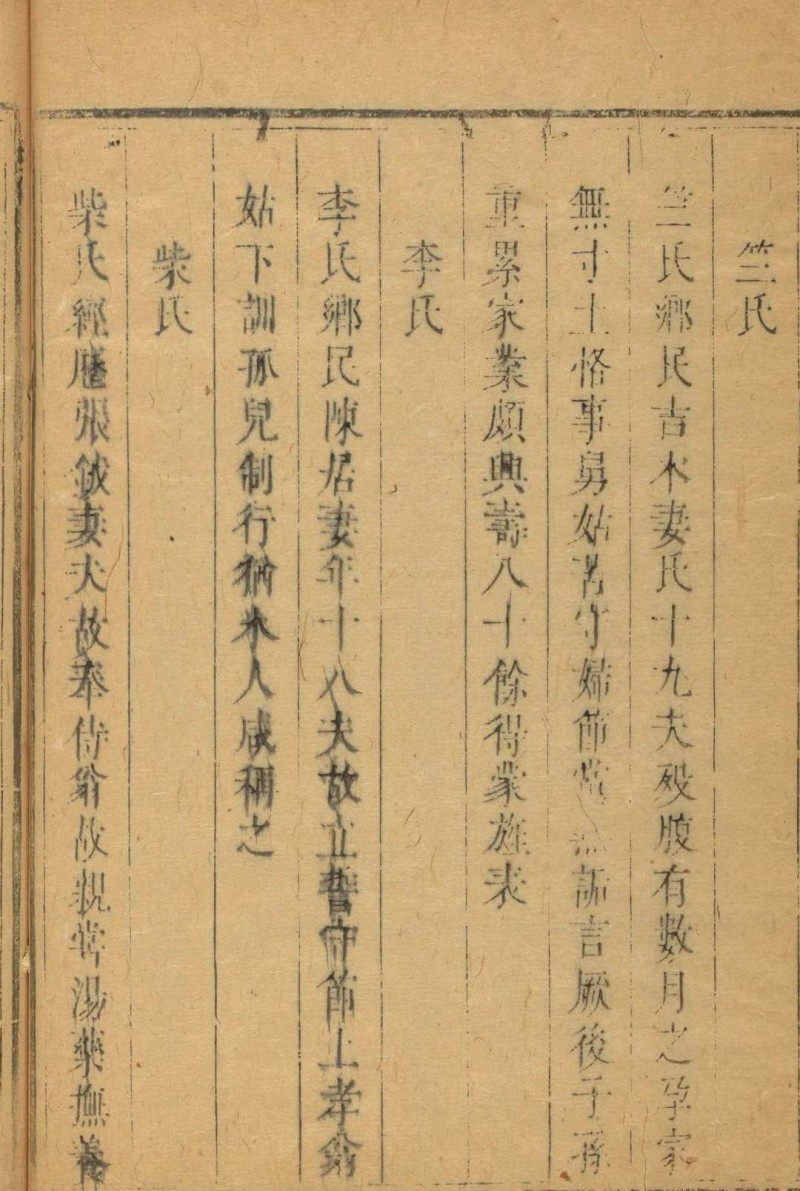 竺氏
竺氏鄉民吉木妻氏十九夫歿腹有數月之孕家
無寸土恪事舅姑苦守婦節嘗無訴言厥後子孫
重累家業頗興壽八十餘得蒙旌表
李氏
李氏鄉民陳居妻年十八夫故立誓守節上孝翁
姑下訓孤兒制行猶氷人咸稱之
柴氏
柴氏經歷張鉞妻夫故奉侍翁故親嘗湯藥撫養